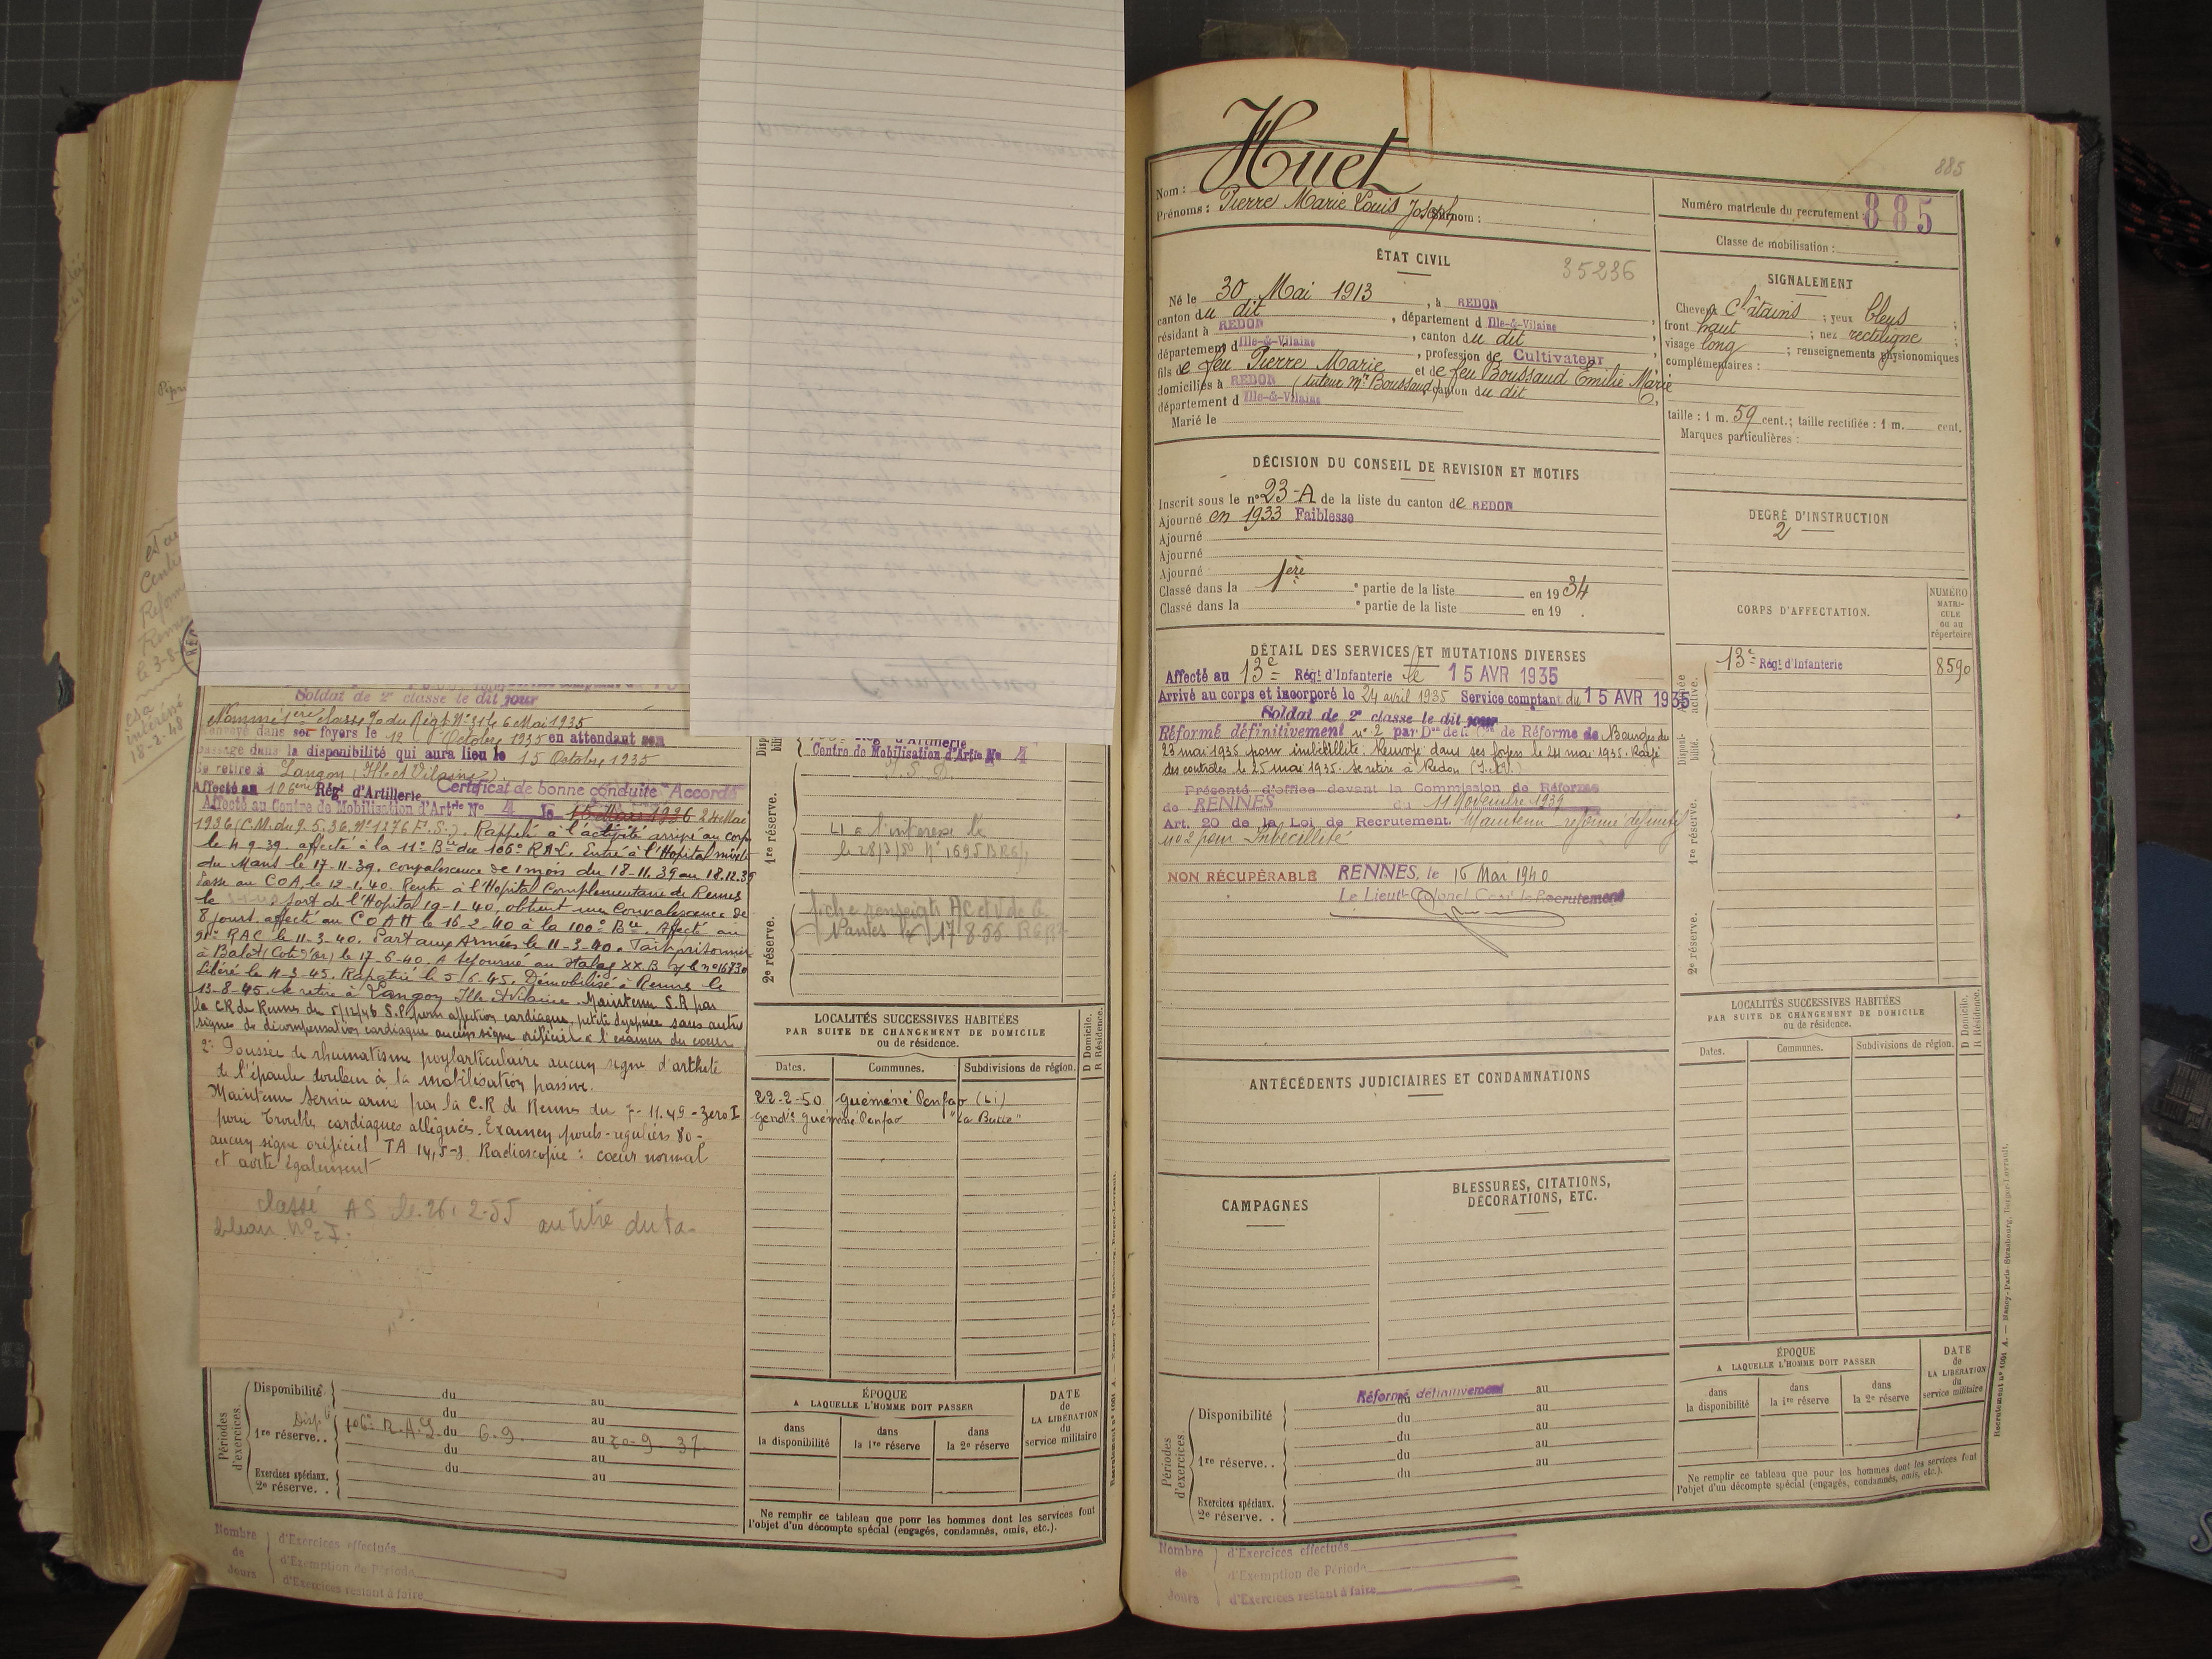 Soldat de 2e classe le dit jour
Nommé 1ère classe % du Régt N° 31 le 6 Mai 1935
Renvoyé dans ses foyers le 12 Octobre 1935 en attendant son
passage dans la disponibilité qui aura lieu le 15 Octobre 1935
Se retire à Langon (Ille et Vilaine).
Certificat de bonne conduite "Accordé"
Affecté au 106ème Régt d'Artillerie
Affecté au Centre de Mobilisation d'Artrie No 4 le 15 Mars 1936 24 Mai
1936 (C.M. du 9.5.36. N° 1276 E.S.). Rappelé à l'activité arrivé au corps
le 4-9-39. affecté à la 11e Bie du 106e RAL. Entré à l'Hopital mixte
du Mans le 17-11-39. convalescence de 1 mois du 18-11.39 au 18.12.39
Passe au COA. le 12-1-40. Rentre à l'Hopital Complémentaire de Rennes
le sort de l'Hopital 19-1-40, obtient une Convalescence de
8 jours. affecté au COAM le 16-2-40 à la 100e Bie. Affecté au
RAC le 11-3-40. Part aux Armées le 11-3-40. Fait prisonnier
à Balot (Cote d'Or) le 17-6-40. A séjourné au Stalag XX.B
Libéré le 4-3-45. Rapatrié le 5/6-45. Démobilisé à Rennes le
13-8-45. Se retire à Langon Ille et Vilaine. Maintenu S.A par
la CR de Rennes du 5/12/46 pour affection cardiaque, petite dyspnée sans autre
signe de décompensation cardiaque aucun signe orificiel à l'examen du coeur
2° Poussée de rhumatisme poylarticulaire aucun signe d'arthrite
de l'épaule douleur à la mobilisation passive.
Maintenu Service armé par la C.R de Rennes du 7-11.49 - Zero I
pour troubles cardiaques allégués. Examen pouls-reguliers 80-
aucun signe orificiel TA 14,5-8 Radioscopie : coeur normal
et aorte également
classé AS le 26.2-55 au titre du ta-
bleau N° I.
18-2-48
Périodes d'exercices.
Disponibilité du au
du au
1re réserve.. 106e R.A.L du 6-9. au 20-9 37
du au
du au
Exercices spéciaux.
2e réserve..
Nombre de Jours
d'Exercices effectués
d'Exemption de Période
d'Exercices restant à faire
d'Artillerie
Centre de Mobilisation d'Artie No 4
1re réserve.
le 28/3/50 N° 1695 BR6/
2e réserve.
fiche renseigts AC et V de G.
Nantes 17 8-55
LOCALITÉS SUCCESSIVES HABITÉES
PAR SUITE DE CHANGEMENT DE DOMICILE
ou de résidence.
D Domicile.
R Résidence.
Dates. Communes. Subdivisions de région.
22-2-50 Guémené Penfao (Li)
Gendie Guémené Penfao "La Butte"
ÉPOQUE
A LAQUELLE L'HOMME DOIT PASSER
DATE
de
LA LIBÉRATION
du
service militaire
dans
la disponibilité
dans
la 1re réserve
dans
la 2e réserve
Ne remplir ce tableau que pour les hommes dont les services font
l'objet d'un décompte spécial (engagés, condamnés, omis, etc.).
885
Nom : Huet
Prénoms : Pierre Marie Louis Joseph Surnom :
Numéro matricule du recrutement : 885
Classe de mobilisation :
ÉTAT CIVIL
35236
Né le 30 Mai 1913, à REDON
canton du dit, département d Ille-&-Vilaine
résidant à REDON, canton du dit
département d Ille-&-Vilaine, profession de Cultivateur
fils de feu Pierre Marie et de feu Boussaud Emilie Marie
domiciliés à REDON (tuteur Mr Boussaud), canton du dit
département d Ille-&-Vilaine
Marié le
SIGNALEMENT
Cheveux châtains ; yeux bleus ;
front haut ; nez rectiligne ;
visage long ; renseignements physionomiques
complémentaires :
taille : 1 m. 59 cent.; taille rectifiée : 1 m. cent.
Marques particulières :
DÉCISION DU CONSEIL DE REVISION ET MOTIFS
Inscrit sous le n° 23-A de la liste du canton de REDON
Ajourné en 1933 Faiblesse
Ajourné
Ajourné
Ajourné
Classé dans la 1ère e partie de la liste en 1934
Classé dans la e partie de la liste en 19 .
DEGRÉ D'INSTRUCTION
2
CORPS D'AFFECTATION.
NUMÉRO
MATRI-
CULE
ou au
répertoire
13e Régt d'Infanterie 8590
Disponi-
bilité.
1re réserve.
2e réserve.
DÉTAIL DES SERVICES ET MUTATIONS DIVERSES
Affecté au 13e Régt d'Infanterie le 15 AVR 1935
Arrivé au corps et incorporé le 24 avril 1935 Service comptant du 15 AVR 1935
Soldat de 2e classe le dit jour
Réformé définitivement n° 2 par Don de la Con de Réforme de Bourges du
23 mai 1935 pour imbécillité. Renvoyé dans ses foyers le 24 mai 1935. Rayé
des contrôles le 25 mai 1935. se retire à Redon (I.&V.)
Présenté d'office devant la Commission de Réforme
de RENNES du 11 Novembre 1939
Art. 20 de la Loi de Recrutement. Maintenu réformé définitif
n° 2 pour Imbécillité
NON RÉCUPÉRABLE RENNES, le 16 Mai 1940
Le Lieut-Colonel Comt le Recrutement
ANTÉCÉDENTS JUDICIAIRES ET CONDAMNATIONS
CAMPAGNES
BLESSURES, CITATIONS,
DÉCORATIONS, ETC.
LOCALITÉS SUCCESSIVES HABITÉES
PAR SUITE DE CHANGEMENT DE DOMICILE
ou de résidence.
D Domicile.
R Résidence.
Dates. Communes. Subdivisions de région.
Périodes d'exercices.
Réformé définitivement
Disponibilité du au
du au
1re réserve.. du au
du au
Exercices spéciaux.
2e réserve..
ÉPOQUE
A LAQUELLE L'HOMME DOIT PASSER
DATE
de
LA LIBÉRATION
du
service militaire
dans
la disponibilité
dans
la 1re réserve
dans
la 2e réserve
Ne remplir ce tableau que pour les hommes dont les services font
l'objet d'un décompte spécial (engagés, condamnés, omis, etc.).
Nombre de Jours
d'Exercices effectués
d'Exemption de Période
d'Exercices restant à faire
Recrutement n° 1091 A. — Nancy-Paris-Strasbourg, Berger-Levrault.